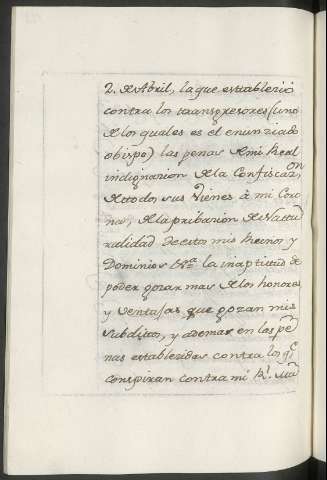 2. de Abril, la que establezió
contra los transgresores (uno
de los quales es el enunziado
obispo) las penas de mi Real
indignazion de la Confiscaz.on
de todos sus Vienes à mi Coro
na, de la pribazion de Natu
ralidad de estos mis Reinos y
Dominios la inaptitud de
poder gozar mas de los honores
y ventajas que gozan mis
subditos, y ademas en las pe
nas establezidas contra los q.e
conspiran contra mi R.l